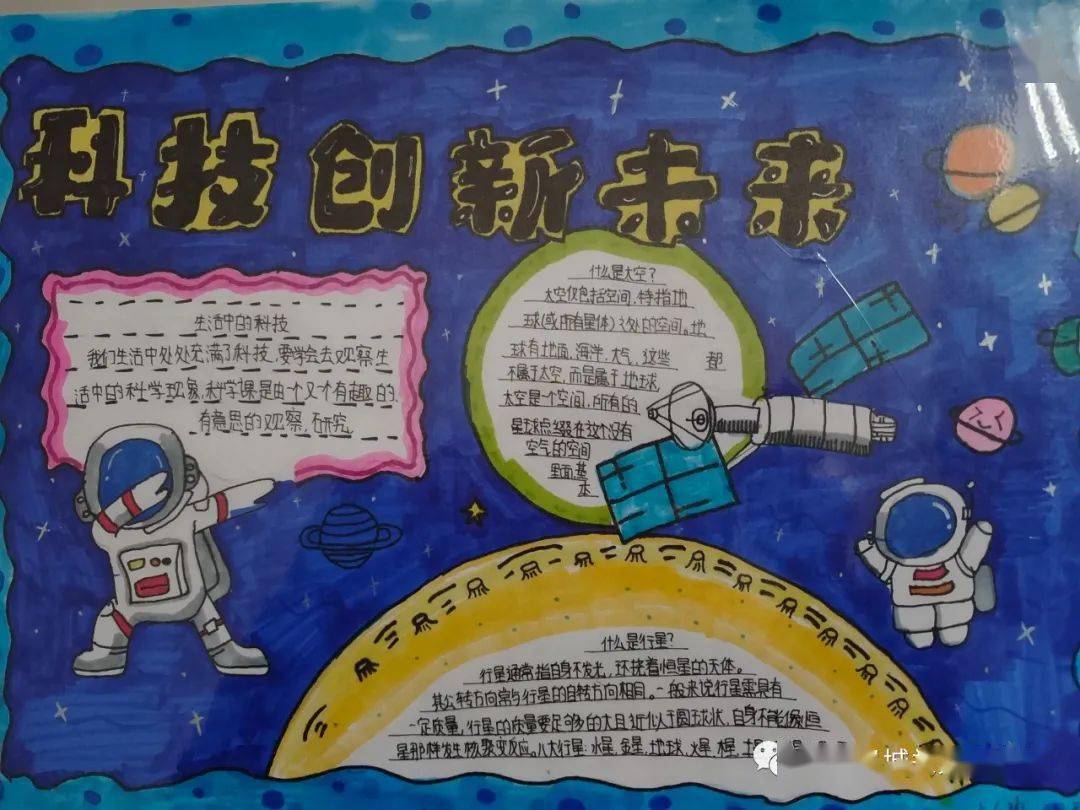 科技创新未来
生活中的科技
我们生活中处处充满了科技,要学会去观察生
活中的科学现象,科学课是由一个又一个有趣的、
有意思的观察,研究
什么是太空?
太空仅包括空间,特指地
球(或所有星体)之处的空间。地
球有地面,海洋,大气,这些 都
不属于太空,而是属于地球,
太空是个空间,所有的
星球点缀在这个没有
空气的空间
里面,基
本
什么是行星?
行星通常指自身不发光,环绕着恒星的天体。
其公转方向常与行星的自转方向相同。一般来说行星需具有
一定质量,行星的质量要足够的大且近似于圆球状,自身不能像恒
星那样发生核聚变反应。八大行星:水星,金星,地球,火星,木星,土
城